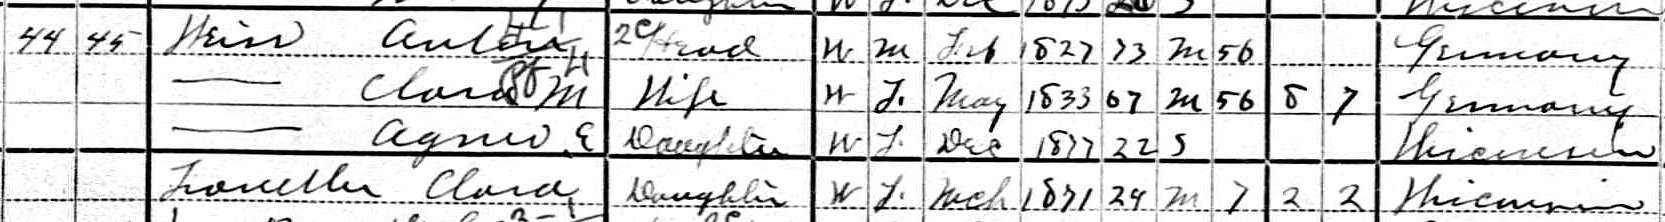 Daughter W F. Dec 1875 S Wisconsin
44 45 Heiss Anton Head W M Feb 1827 73 M 56 Germany
— Clara M Wife W F. May 1833 67 M 56 8 7 Germany
— Agnes E Daughter W F. Dec 1877 22 S Wisconsin
Clara Daughter W F. Mch 1871 29 M 7 2 2 Wisconsin